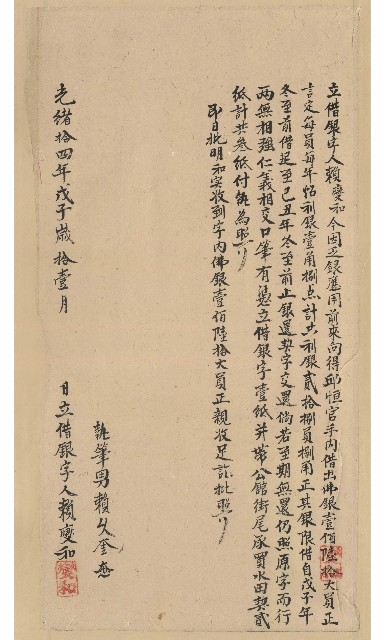 立借銀字人賴變和今因乏銀應用前來向得邱恒官手內借出佛銀壹佰陸拾大員正
言定每員每年怗利銀壹角捌点計共利銀貳拾捌員捌角正其銀限借自戊子年
冬至前借起至己丑年冬至前止銀還契字交還倘若至期無還仍照原字而行
兩無相強仁義相交口筆有憑立借銀字壹紙并帶公館街尾承買水田契貳
紙計共叁紙付執為照
即日批明和實收到字內佛銀壹佰陸拾大員正親收足訖批照
執筆男賴久奎
光緒拾四年戊子歲拾壹月 日立借銀字人賴變和